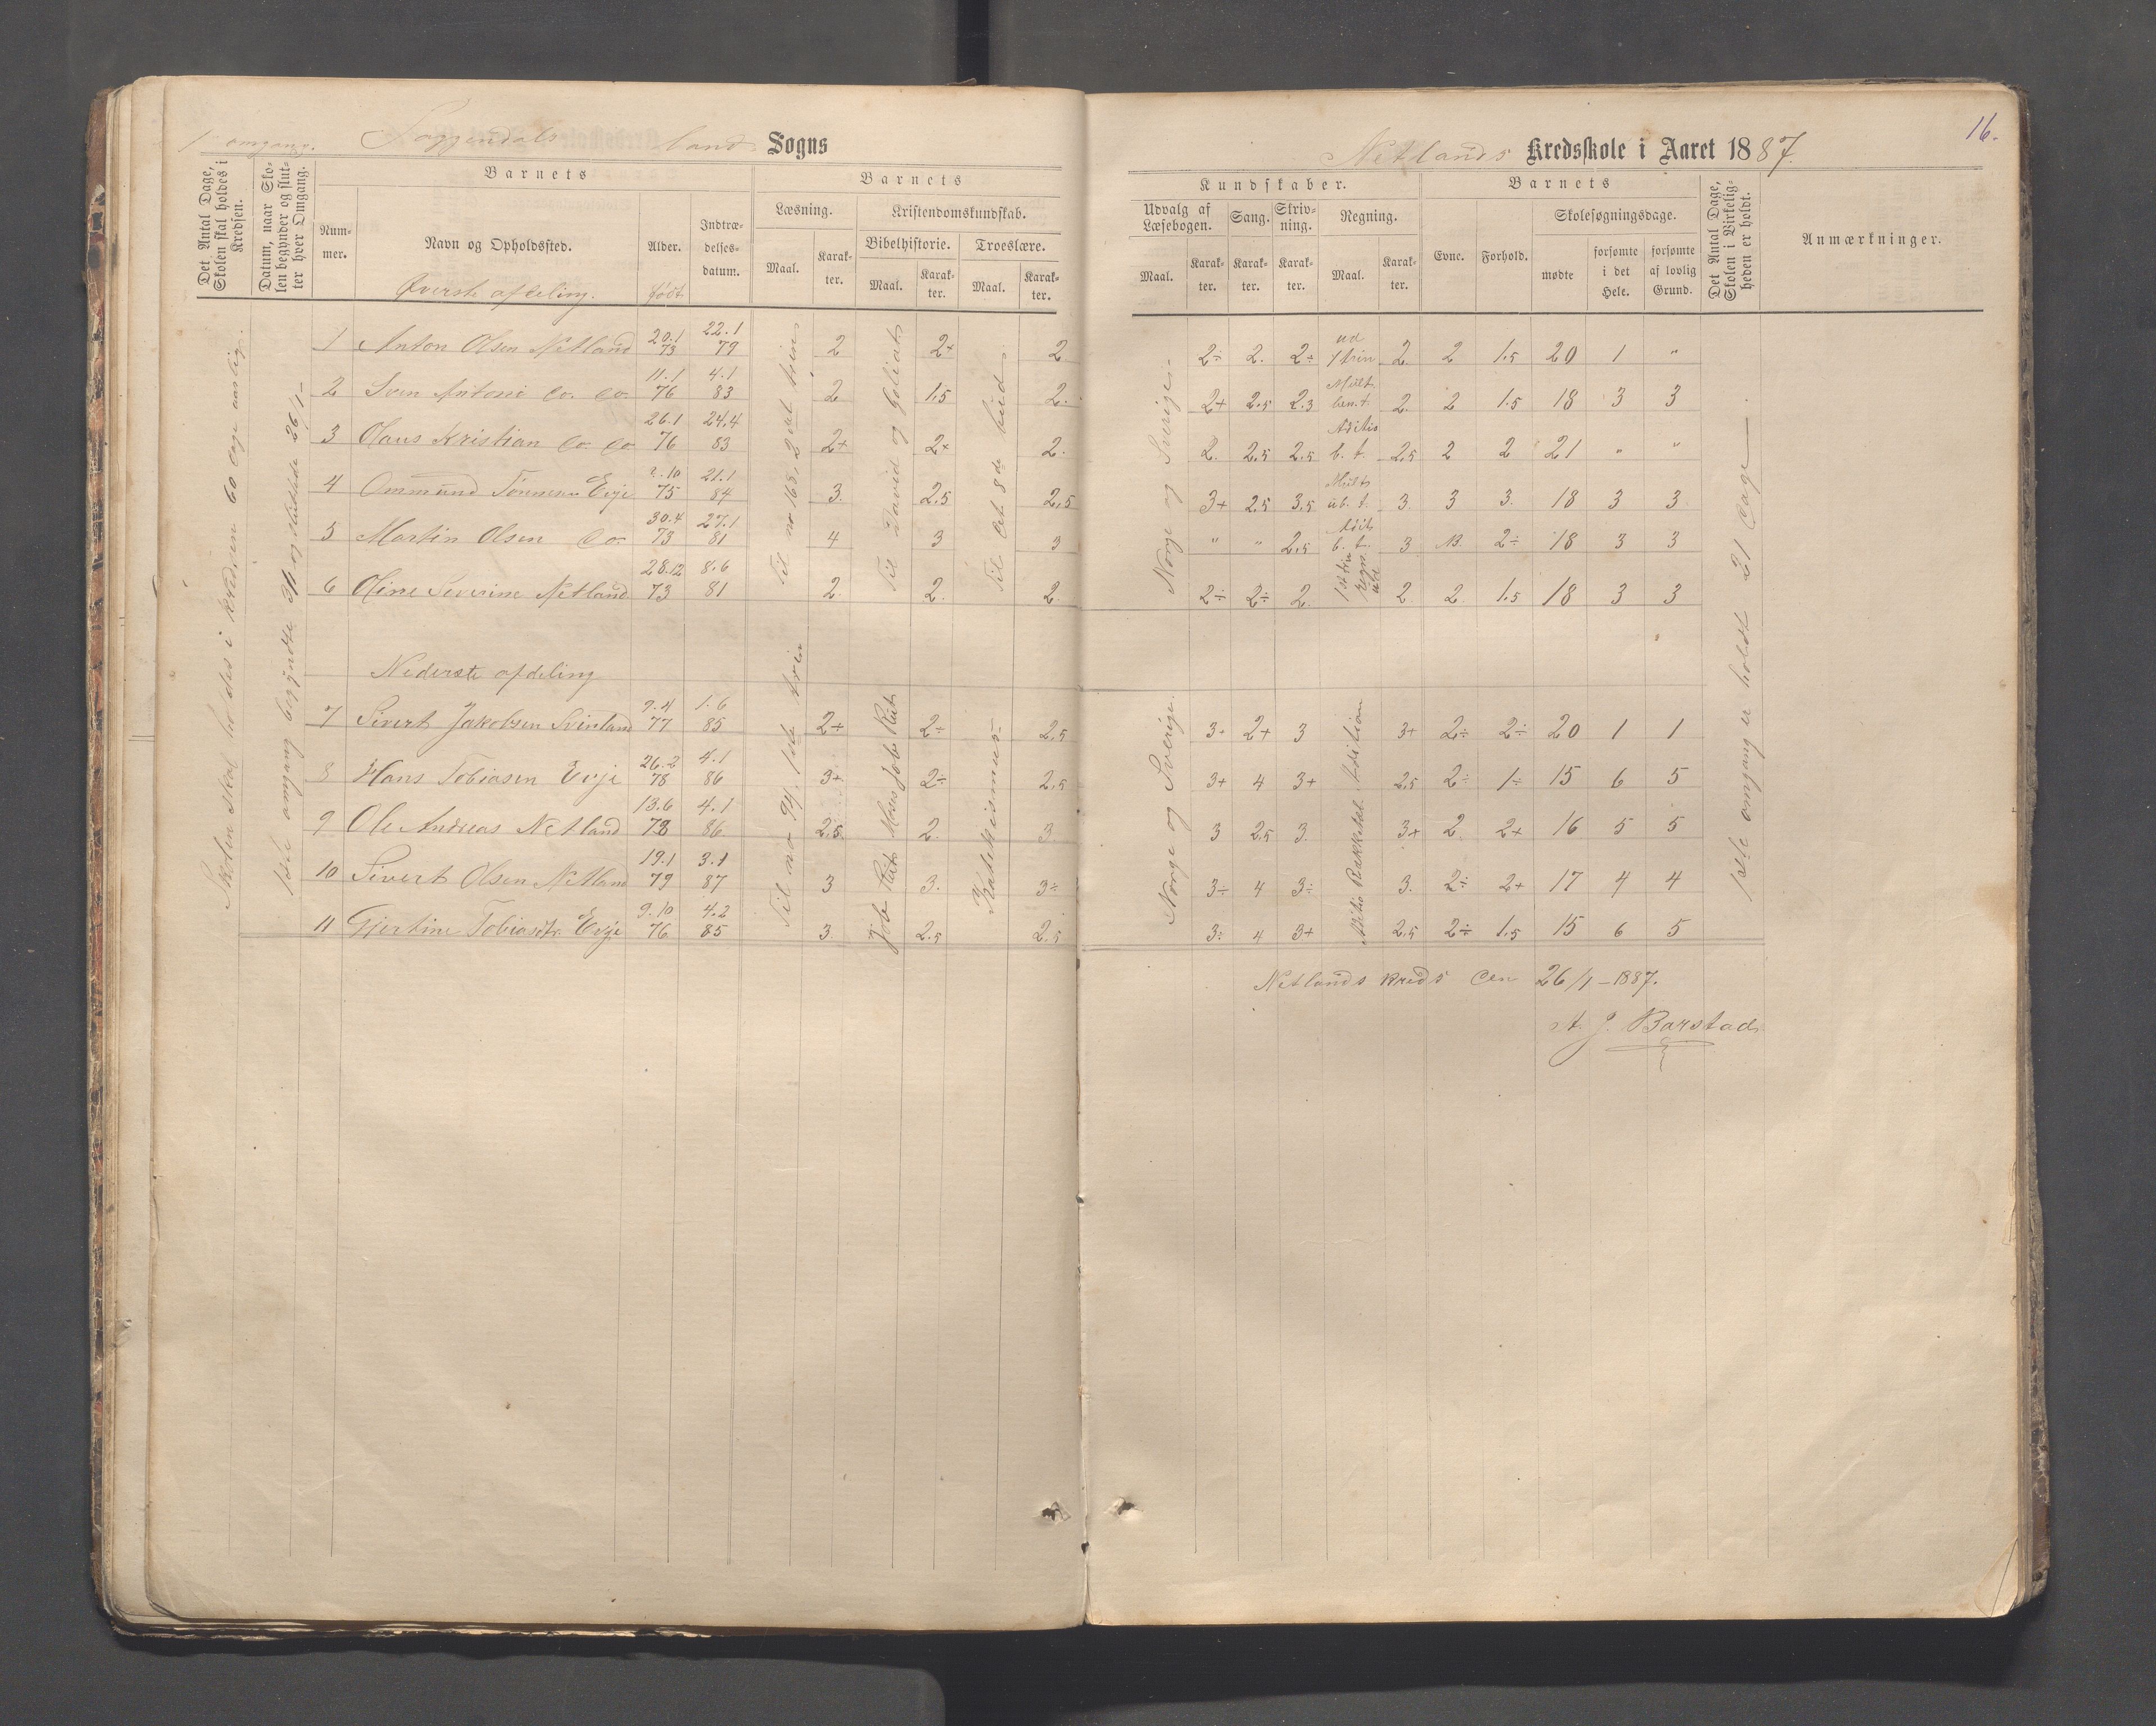 1 omgang. Soggendals land Sogns
Netlands Kredsskole i Aaret 1887.
16.
Det Antal Dage, Skolen skal holdes i Kredsen.
Datum, naar Skolen begynder og slutter hver Omgang.
Barnets
Nummer.
Navn og Opholdssted.
Øverste afdeling.
Alder.
født
Indtrædelsesdatum.
Barnets
Læsning.
Maal.
Karakter.
Kristendomskundskab.
Bibelhistorie.
Maal.
Karakter.
Troeslære.
Maal.
Karakter.
Kundskaber.
Udvalg af Læsebogen.
Maal.
Karakter.
Sang.
Karakter.
Skrivning.
Karakter.
Regning.
Maal.
Karakter.
Barnets
Evne.
Forhold.
Skolesøgningsdage.
mødte
forsømte i det Hele.
forsømte af lovlig Grund.
Det Antal Dage, Skolen i Virkeligheden er holdt.
Anmærkninger.
Skolen skal holdes i kredsen 60 dage aarlig.
1ste omgang begyndte og sluttede 26/1-
1 Anton Olsen Netland 20.1 73 22.1 79 2 2+ 2 2÷ 2. 2÷ ud 2. 2 1.5 20 1 "
2 Sven Antoni do. do. 11.1 76 4.1 83 2 1.5 2. 2+ 2.5 2.3 Mult. ben. t. 2. 2 1.5 18 3 3
3 Olaus Kristian do do 26.1 76 24.4 83 2+ 2+ 2. 2. 2.5 2.5 b. t. 2.5 2 2 21 " "
4 Ommund Tønnesen Evje 2.10 75 21.1 84 3. 2.5 2.5 3+ 2.5 3.5 Mult. ub. t. 3. 3 3. 18 3 3
5 Martin Olsen do. 30.4 73 27.1 81 4 3 3 " " 2.5 b. t. 3 2÷ 18 3 3
6 Oline Severine Netland 28.12 73 8.6 81 2. 2. 2. 2÷ 2÷ 2. 2. 2. 1.5 18 3 3
Til no 168, 2det trin
Til David og Goliath
Til det 8de bud
Norge og Sverige
Nederste afdeling
7 Sivert Jakobsen Svinland 9.4 77 1.6 85 2÷ 2÷ 2.5 3+ 2+ 3 3+ 2÷ 2÷ 20 1 1
8 Hans Tobiasen Evje 26.2 78 4.1 86 3+ 2÷ 2.5 3+ 4 3+ 2.5 2÷ 1÷ 15 6 5
9 Ole Andreas Netland 13.6 78 4.1 86 2.5 2. 3. 3 2.5 3. 3+ 2. 2+ 16 5 5
10 Sivert Olsen Netland 19.1 79 3.1 87 3 3. 3÷ 3÷ 4 3÷ 3. 2÷ 2+ 17 4 4
11 Gjertine Tobiasdtr. Evje 9.10 76 4.2 85 3. 2.5 2.5 3÷ 4 3+ 2.5 2÷ 1.5 15 6 5
Til no 94, 1ste trin
Job Rut Moses Job Rut
Katekismus
Norge og Sverige.
Addition
1ste omgang er holdt 21 dage
Netlands kreds den 26/1-1887.
A. J. Barstad